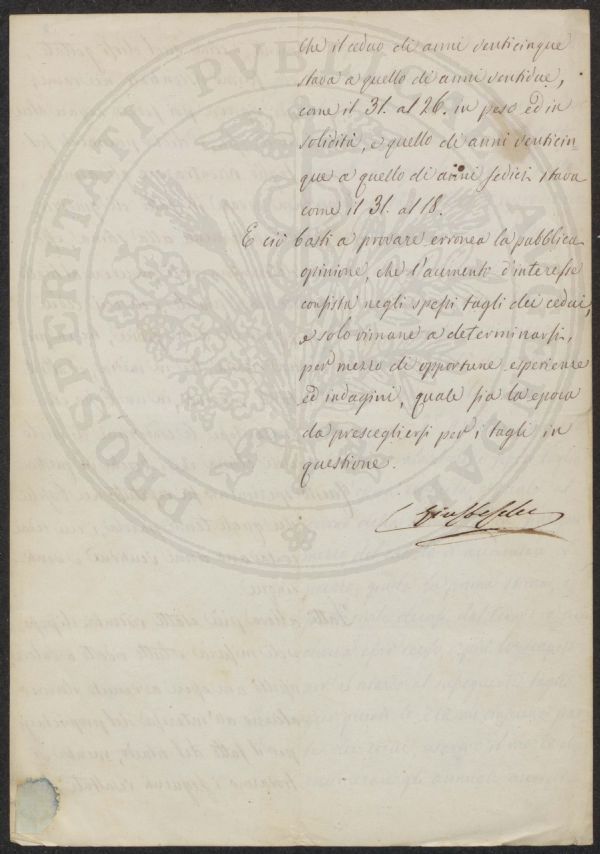 che il ceduo di anni venticinque
stava a quello di anni ventidue,
come il 31. al 26. in peso ed in
solidità, e quello di anni venticin-
que a quello di anni sedici stava
come il 31. al 18.
E ciò basti a provare erronea la pubblica
opinione, che l'aumento d'interesse
consista negli spessi tagli dei cedui,
e solo rimane a determinarsi,
per mezzo di opportune esperienze
ed indagini, quale sia la epoca
da prescegliersi per i tagli in
questione.
PROSPERITATI PUBLICAE